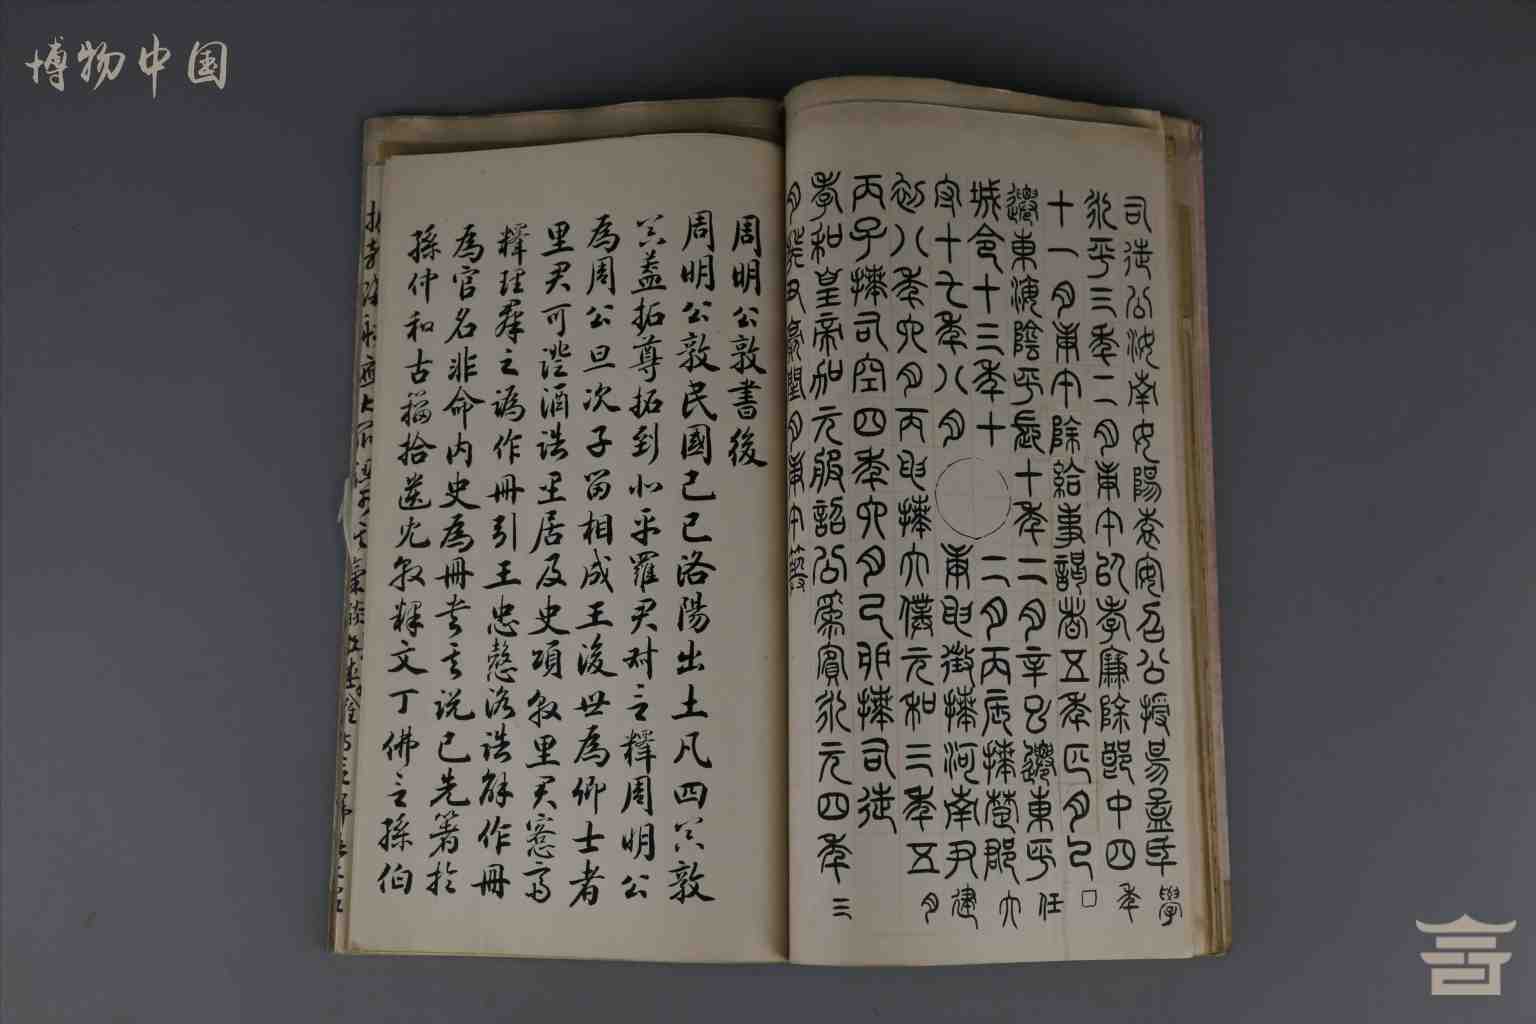 博物中国
司徒公汝南女陽袁安召公授易孟氏學
永平三年二月庚午以孝廉除郎中四年
十一月庚午除給事謁者五年正月乙□
遷東海陰平長十年二月辛巳遷東平任
城令十三年十二月丙辰拜楚郡太
守十七年八月庚申徵拜河南尹建
初八年六月丙申拜太僕元和三年五月
丙子拜司空四年六月己卯拜司徒
孝和皇帝加元服詔公為賓永元四年三
月癸丑薨閏月庚午葬
周明公敦書後
周明公敦民國己巳洛陽出土凡四器敦
器蓋拓尊拓到北平羅君叔言釋周明公
為周公旦次子留相成王後世為卿士者
里君可證酒誥里居及史頌敦里君愙齋
釋理群之譌作冊引王忠慤洛誥解作冊
為官名非命內史為冊書其說已先著於
孫仲和古籀拾遺敦釋文丁佛言孫伯